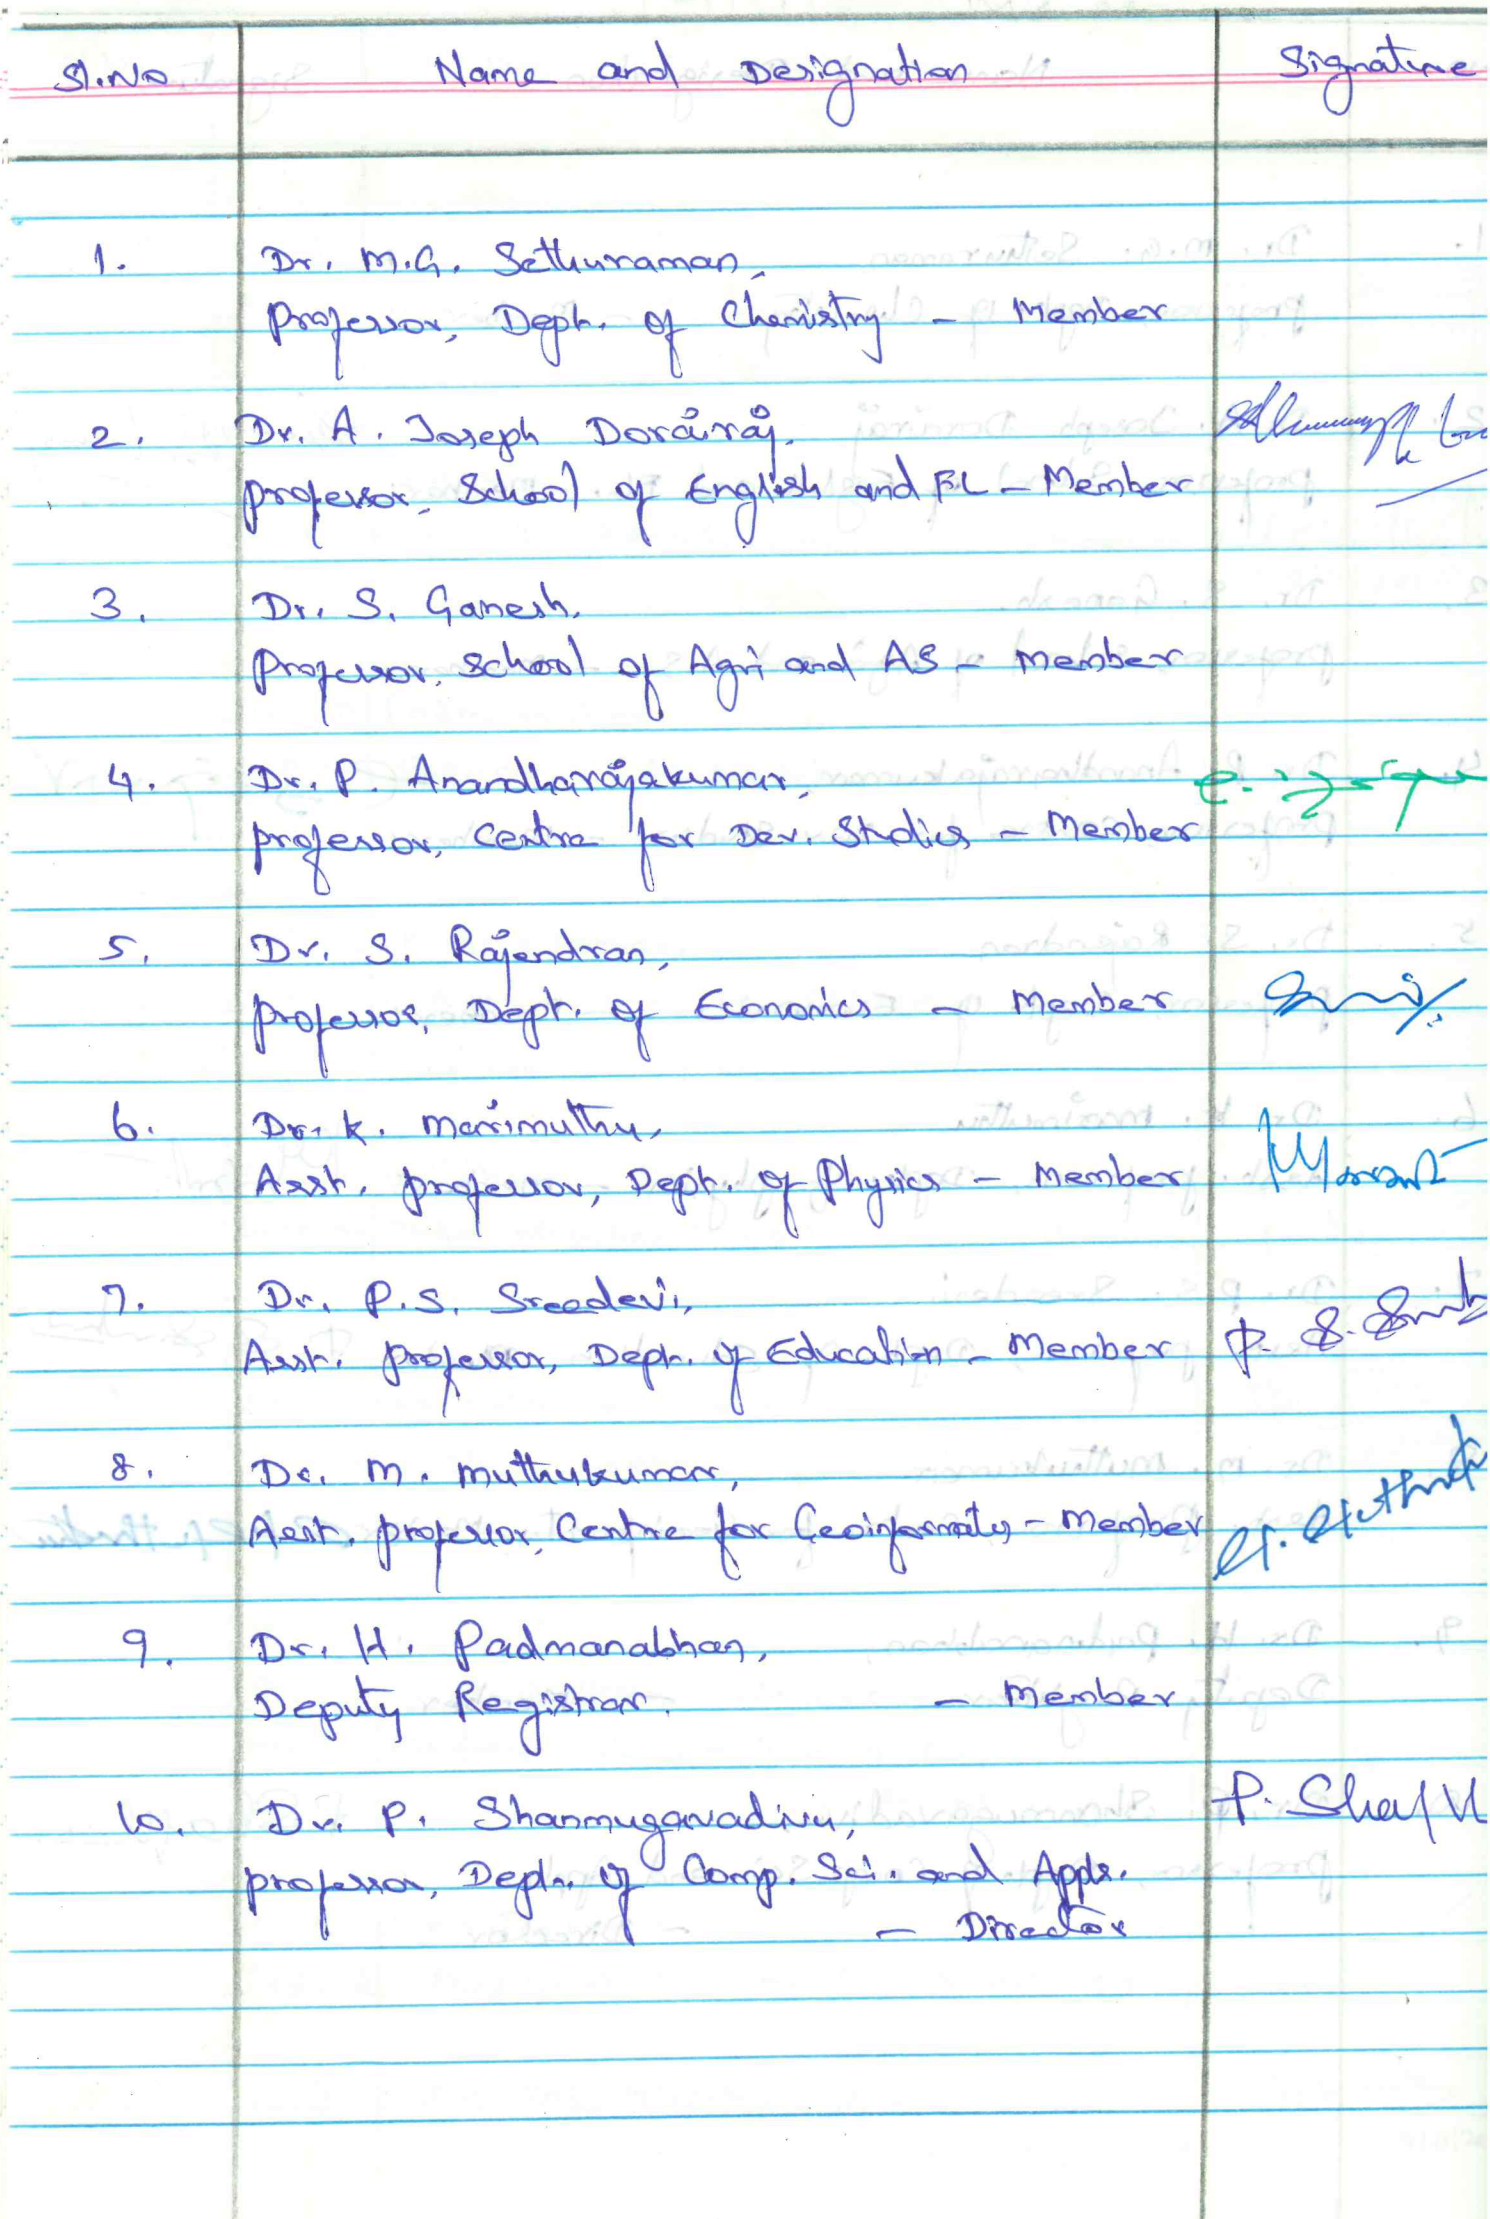 Sl.No Name and Designation Signature
1. Dr. M.G. Sethuraman,
Professor, Dept. of Chemistry - Member
2. Dr. A. Joseph Dorairaj.
Professor, School of English and FL - Member
3. Dr. S. Ganesh.
Professor, School of Agri and AS - Member
4. Dr. P. Anandharajakumar,
Professor, Centre for Dev. Studies - Member
5. Dr. S. Rajendran,
Professor, Dept. of Economics - Member
6. Dr. K. Marimuthu,
Asst. Professor, Dept. of Physics - Member
7. Dr. P.S. Sreedevi,
Asst. Professor, Dept. of Education - Member P. S.
8. Dr. M. Muthukumar,
Asst. Professor, Centre for Geoinformatics - Member
9. Dr. H. Padmanabhan,
Deputy Registrar. - Member
10. Dr. P. Shanmugavadivu, P.
Professor, Dept. of Comp. Sci. and Appls.
- Director